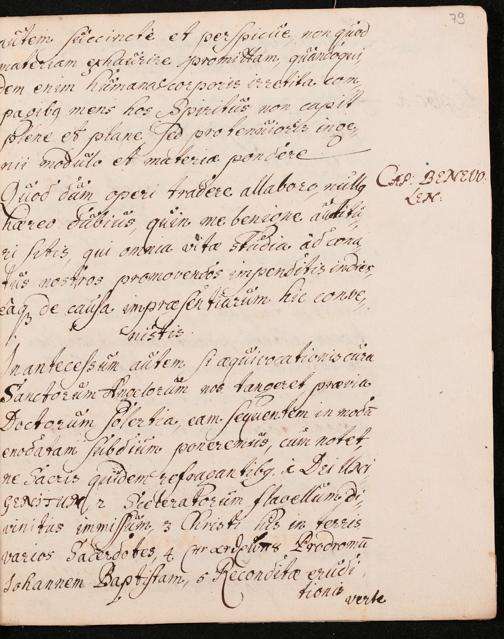 79
autem succincte et perspicue, non quod
materiam exhaurire promittam, quandoqui,
dem enim humanæ corporis irretita com,
pagibq mens hos Spiritus non capit
plene et plane, sed pro tenuioris inge,
nii modulo et materiæ pondere
Quod dum operi tradere allaboro, nullq
CAP: BENEVO.
LEN:
hæreo dubius, quin me benigne auditu,
ri sitis, qui omnia vitæ studia ad cona,
tus nostros promovendos impenditis indies,
eaq de causa impræsentiarum hic conve,
nistis.
In antecessum autem si æquivocationis cura
Sanctorum Angelorum nos tangeret prævia
Doctorum solertia, eam sequentem in modū
enodatam subdium poneremus, cum notet
ne Sacris quidem refragantibq. 1 Dei Uni
GENITUM 2 Sceleratorum flavellum di,
vinitus immissum, 3 Christi his in terris
varios Sacerdotes, 4 Prodromū
Johannem Baptistam, 5 Reconditæ erudi
tionis
verte